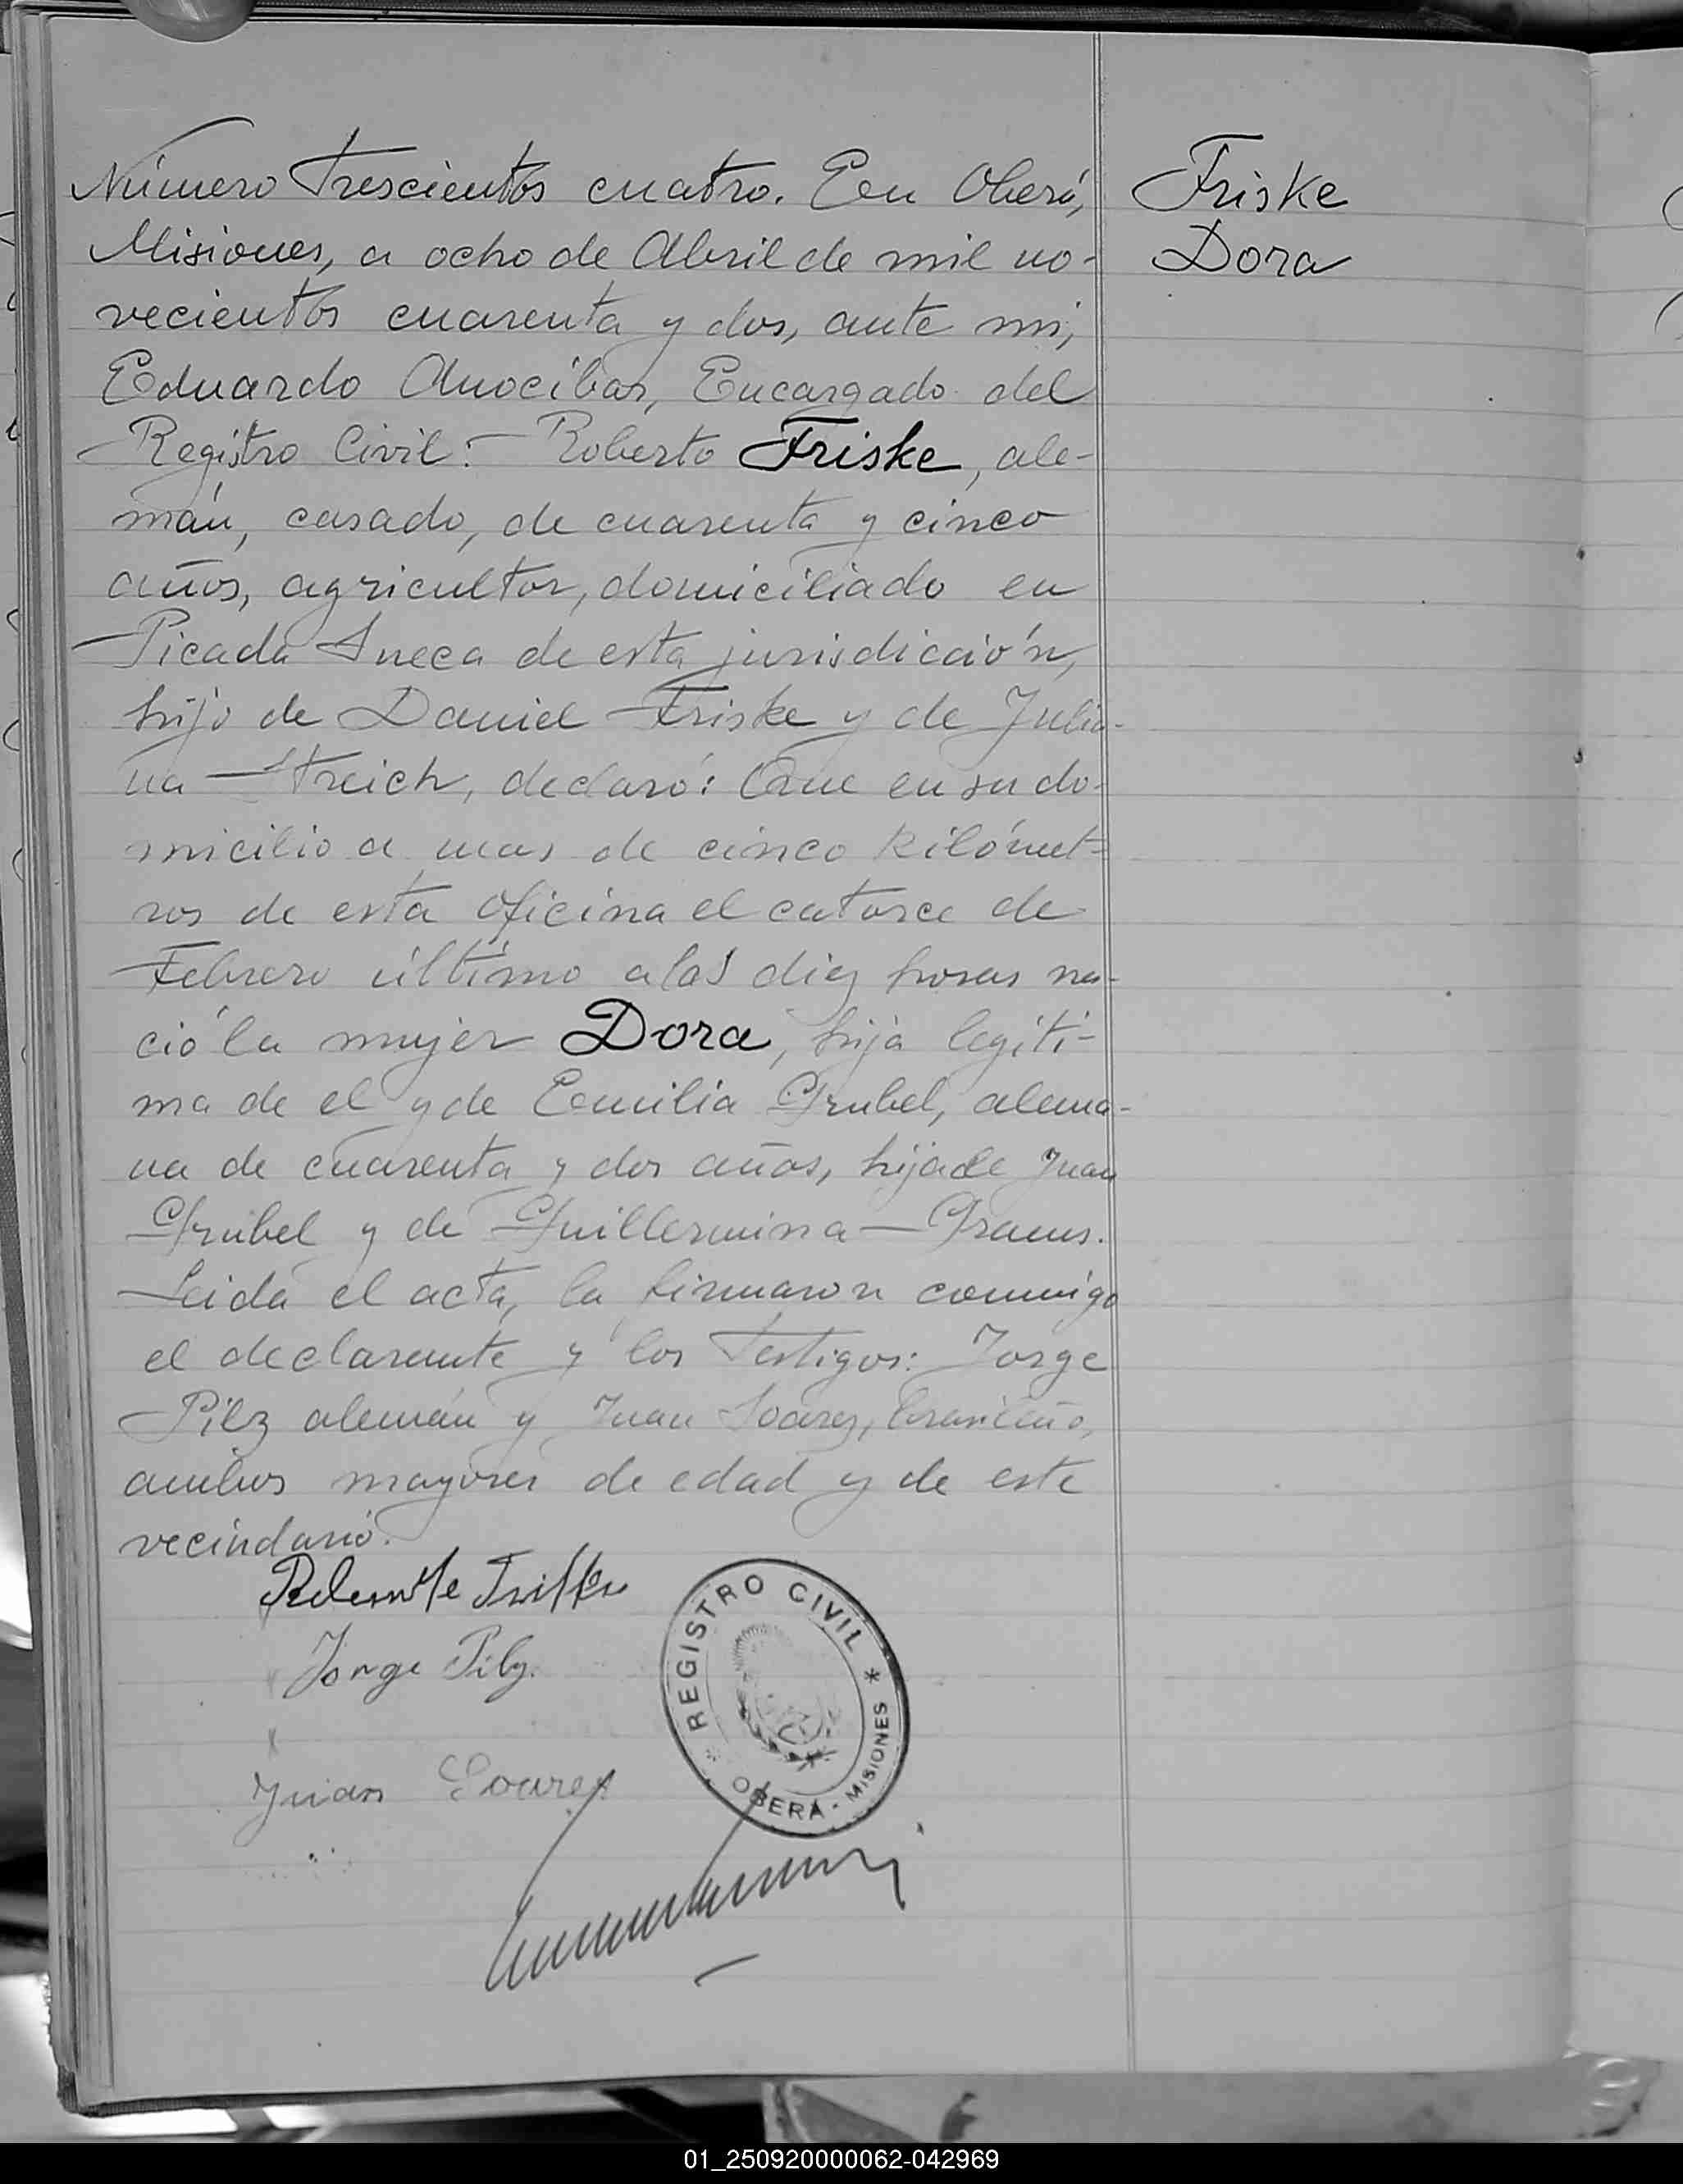 Número Trescientos cuatro. En Oberá,
Misiones, a ocho de Abril de mil no-
vecientos cuarenta y dos, ante mi,
Eduardo Anocibar, Encargado del
Registro Civil:- Roberto Friske, ale-
mán, casado, de cuarenta y cinco
años, agricultor, domiciliado en
Picada Sueca de esta jurisdicción,
hijo de Daniel Friske y de Julia-
na Streich, declaró: Que en su do-
micilio a mas de cinco Kilómet-
ros de esta oficina el catorce de
Febrero último a las diez horas na-
ció la mujer Dora, hija legiti-
ma de el y de Emilia Grubel, alema-
na de cuarenta y dos años, hija de Juan
Grubel y de Guillermina
Leida el acta, la firmaron conmigo
el declarante y los Testigos: Jorge
Pilz alemán y Juan Soarez, brasileño,
ambos mayores de edad y de este
vecindario.
Friske
Dora
Jorge Pilz.
Juan Soarez
REGISTRO CIVIL
OBERÁ - MISIONES
01_250920000062-042969